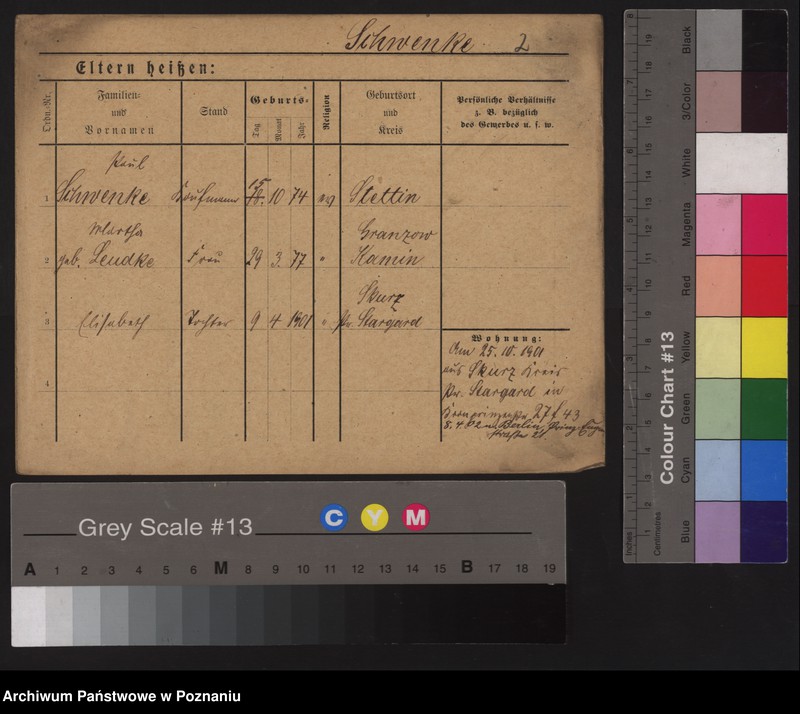 Schwenke 2
Eltern heißen:
Ordn.-Nr. Familien- und Vornamen Stand Geburts- Tag Monat Jahr Religion Geburtsort und Kreis Persönliche Verhältnisse z. B. bezüglich des Gewerbes u. s. w.
Paul
1 Schwenke Kaufmann 15 18. 10 74 ev Stettin
Martha Granzow
2 geb. Leudke Frau 29 3. 77 " Kamin
Skurz
3 Elisabeth Tochter 9 4 1901 " Pr. Stargard
Wohnung:
Am 25. 10. 1901
aus Skurz Kreis
4
Pr. Stargard in
Kronprinzenstr. 27 43
5. 4 02 n. Berlin, Prinz Eugen
straße 21
Grey Scale #13
C Y M
A 1 2 3 4 5 6 M 8 9 10 11 12 13 14 15 B 17 18 19
Colour Chart #13
Blue Cyan Green Yellow Red Magenta White 3/Color Black
Inches 1 2 3 4 5 6 7 8
Centimetres 1 2 3 4 5 6 7 8 9 10 11 12 13 14 15 16 17 18 19
Archiwum Państwowe w Poznaniu